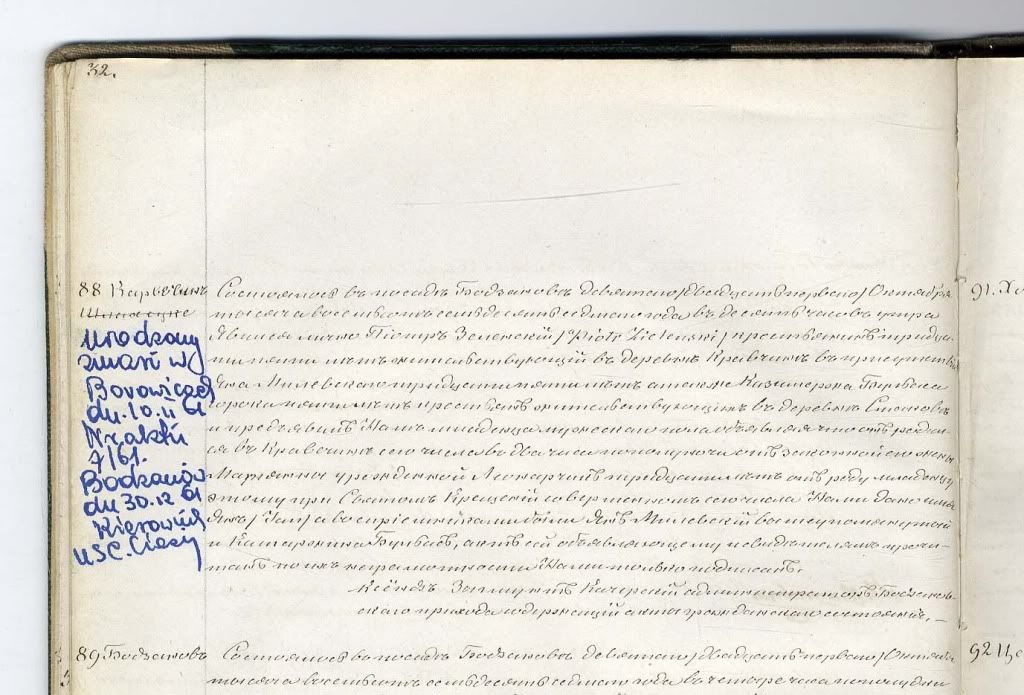 32.
88 Карвчинъ
Urodzony
zmarł w
Borowiczach
dn. 10.11 61
Nr aktu
7/61.
Bodzanów
dn 30.12 61
Kierownik
USC.
Состоялось въ посадѣ Бодзановѣ девятаго /двадцать перваго/ Октября
тысяча восемьсотъ семьдесятъ седьмаго года въ десять часовъ утра
Явился лично Піотръ Зелинскій /Piotr Zieliński/ крестьянинъ тридца-
ти пяти лѣтъ жительствующій въ деревнѣ Кравчинѣ въ присутствіи
Яна Милевскаго тридцати пяти лѣтъ а также Казимержа Бульбаса
сорока пяти лѣтъ крестьянъ жительствующихъ въ деревнѣ
и предъявилъ Намъ младенца мужескаго пола объявляя что онъ родил-
ся въ Кравчинѣ сего числа въ два часа по полуночи отъ законной его жены
Маріанны урожденной тридцати лѣтъ отъ роду младенцу
этому при Святомъ Крещеніи совершенномъ сего числа Нами дано имя
Янъ /Jan/ а воспріемниками были Янъ Милевскій вышеупомянутый
и Катаржина Бульбасъ, актъ сей объявляющему и свидѣтелямъ прочи-
танъ по ихъ неграмотности Нами только подписанъ.
Ксёндзъ Зыгмунтъ Качерскій администраторъ Бодзанов-
скаго прихода содержащій акты гражданскаго состоянія. —
89 Бодзановъ
Состоялось въ посадѣ Бодзановѣ девятаго /двадцать перваго/ Октября
тысяча восемьсотъ семьдесятъ седьмаго года въ четыре часа пополудни
91. Хо
92 Це